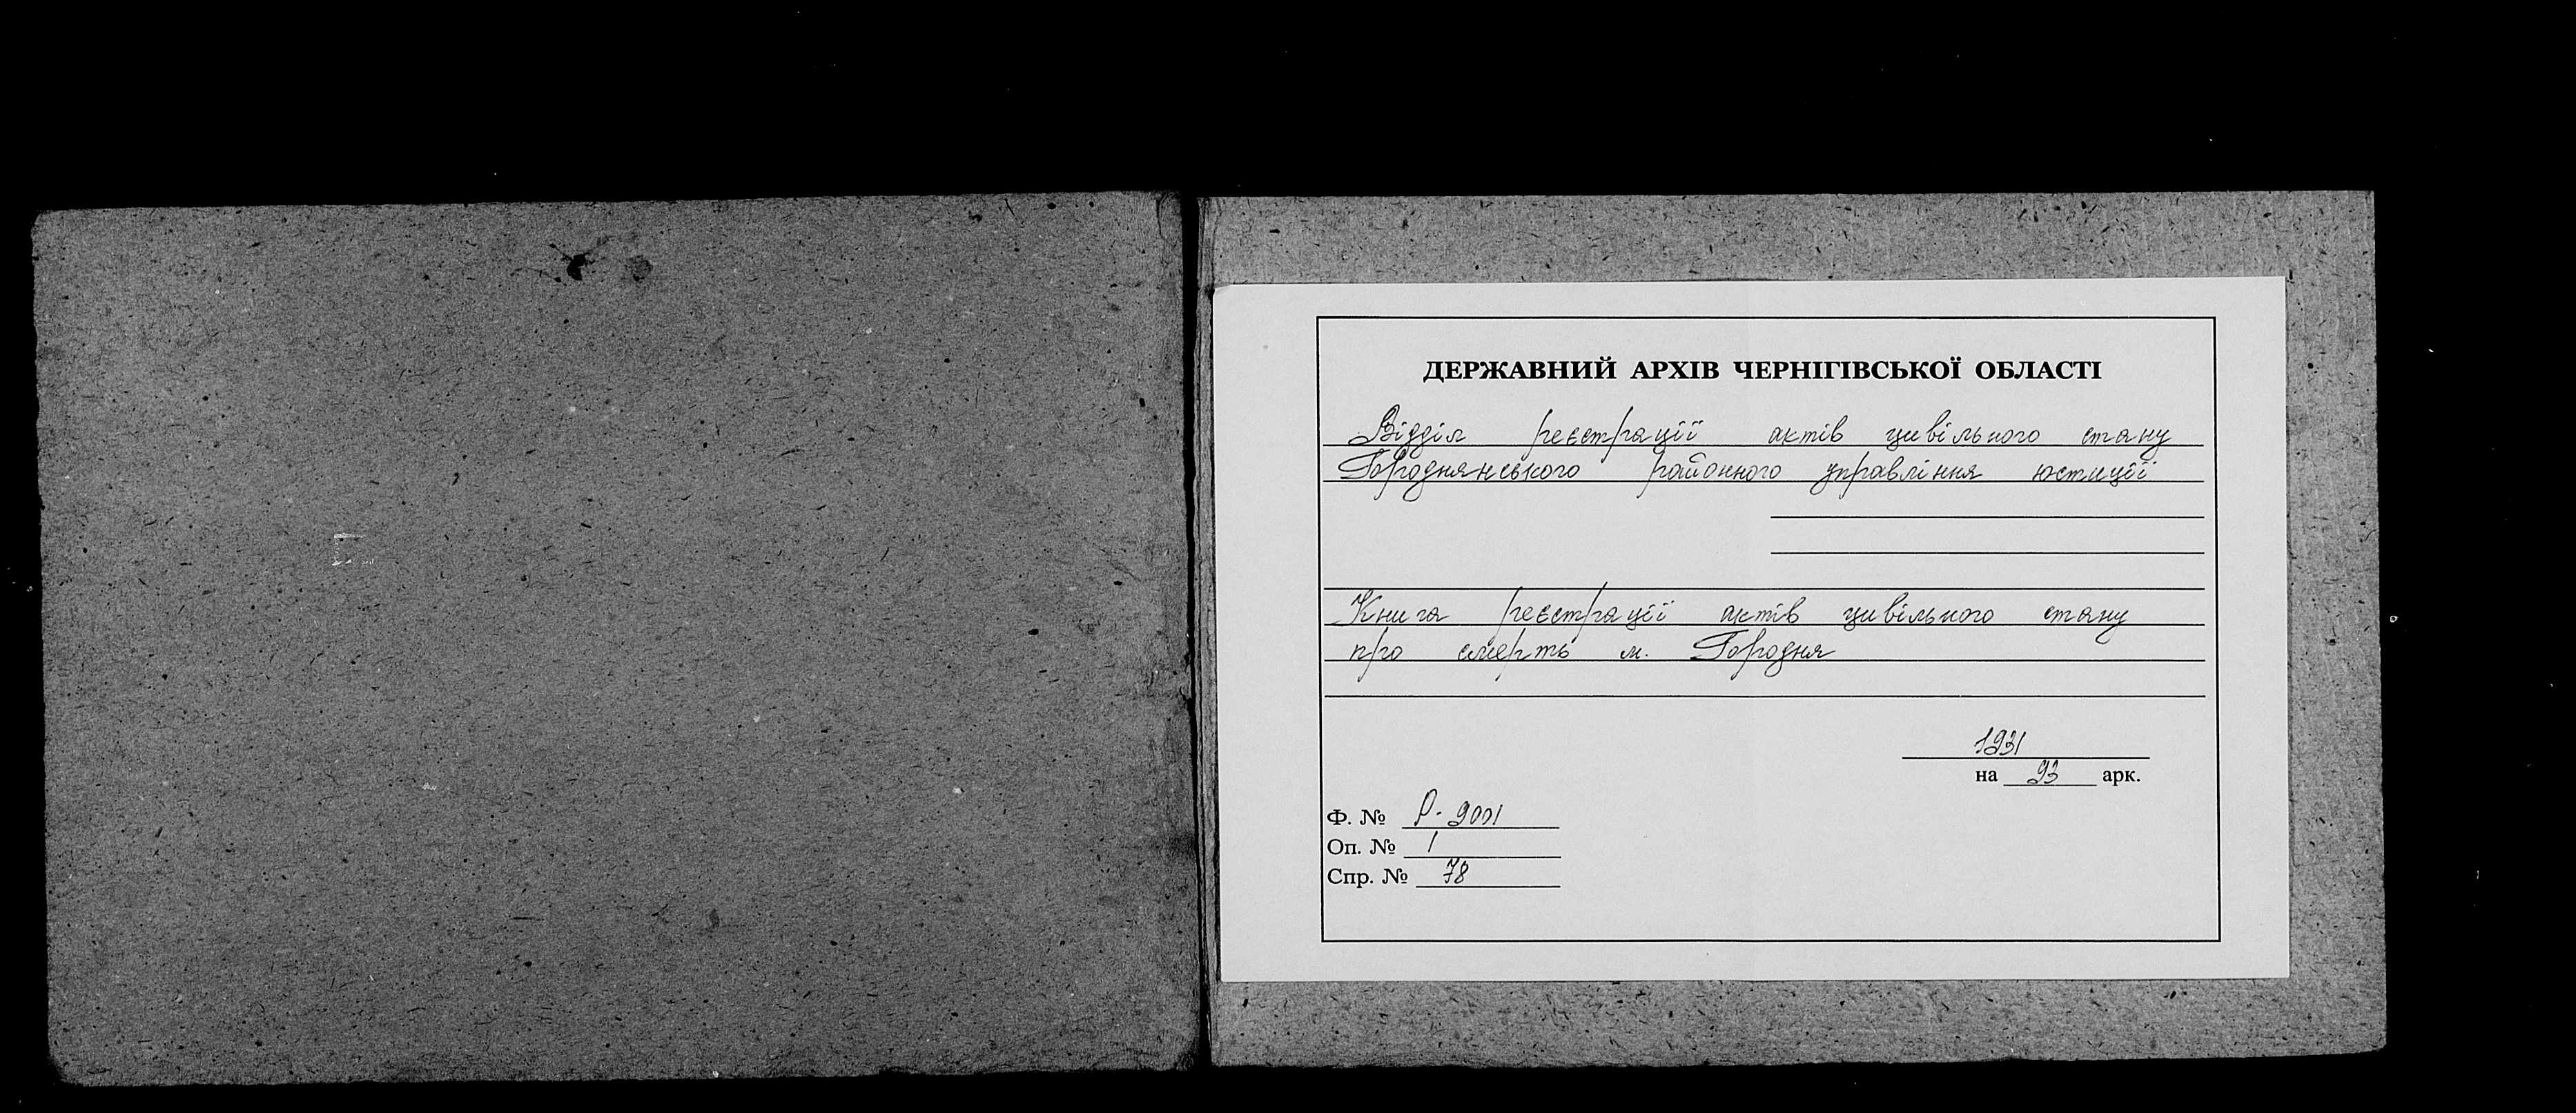 ДЕРЖАВНИЙ АРХІВ ЧЕРНІГІВСЬКОЇ ОБЛАСТІ
Відділ реєстрації актів цивільного стану
Городнянського районного управління юстиції
Книга реєстрації актів цивільного стану
про смерть м. Городня
1931
на 93 арк.
Ф. № Р-9001
Оп. № 1
Спр. № 78